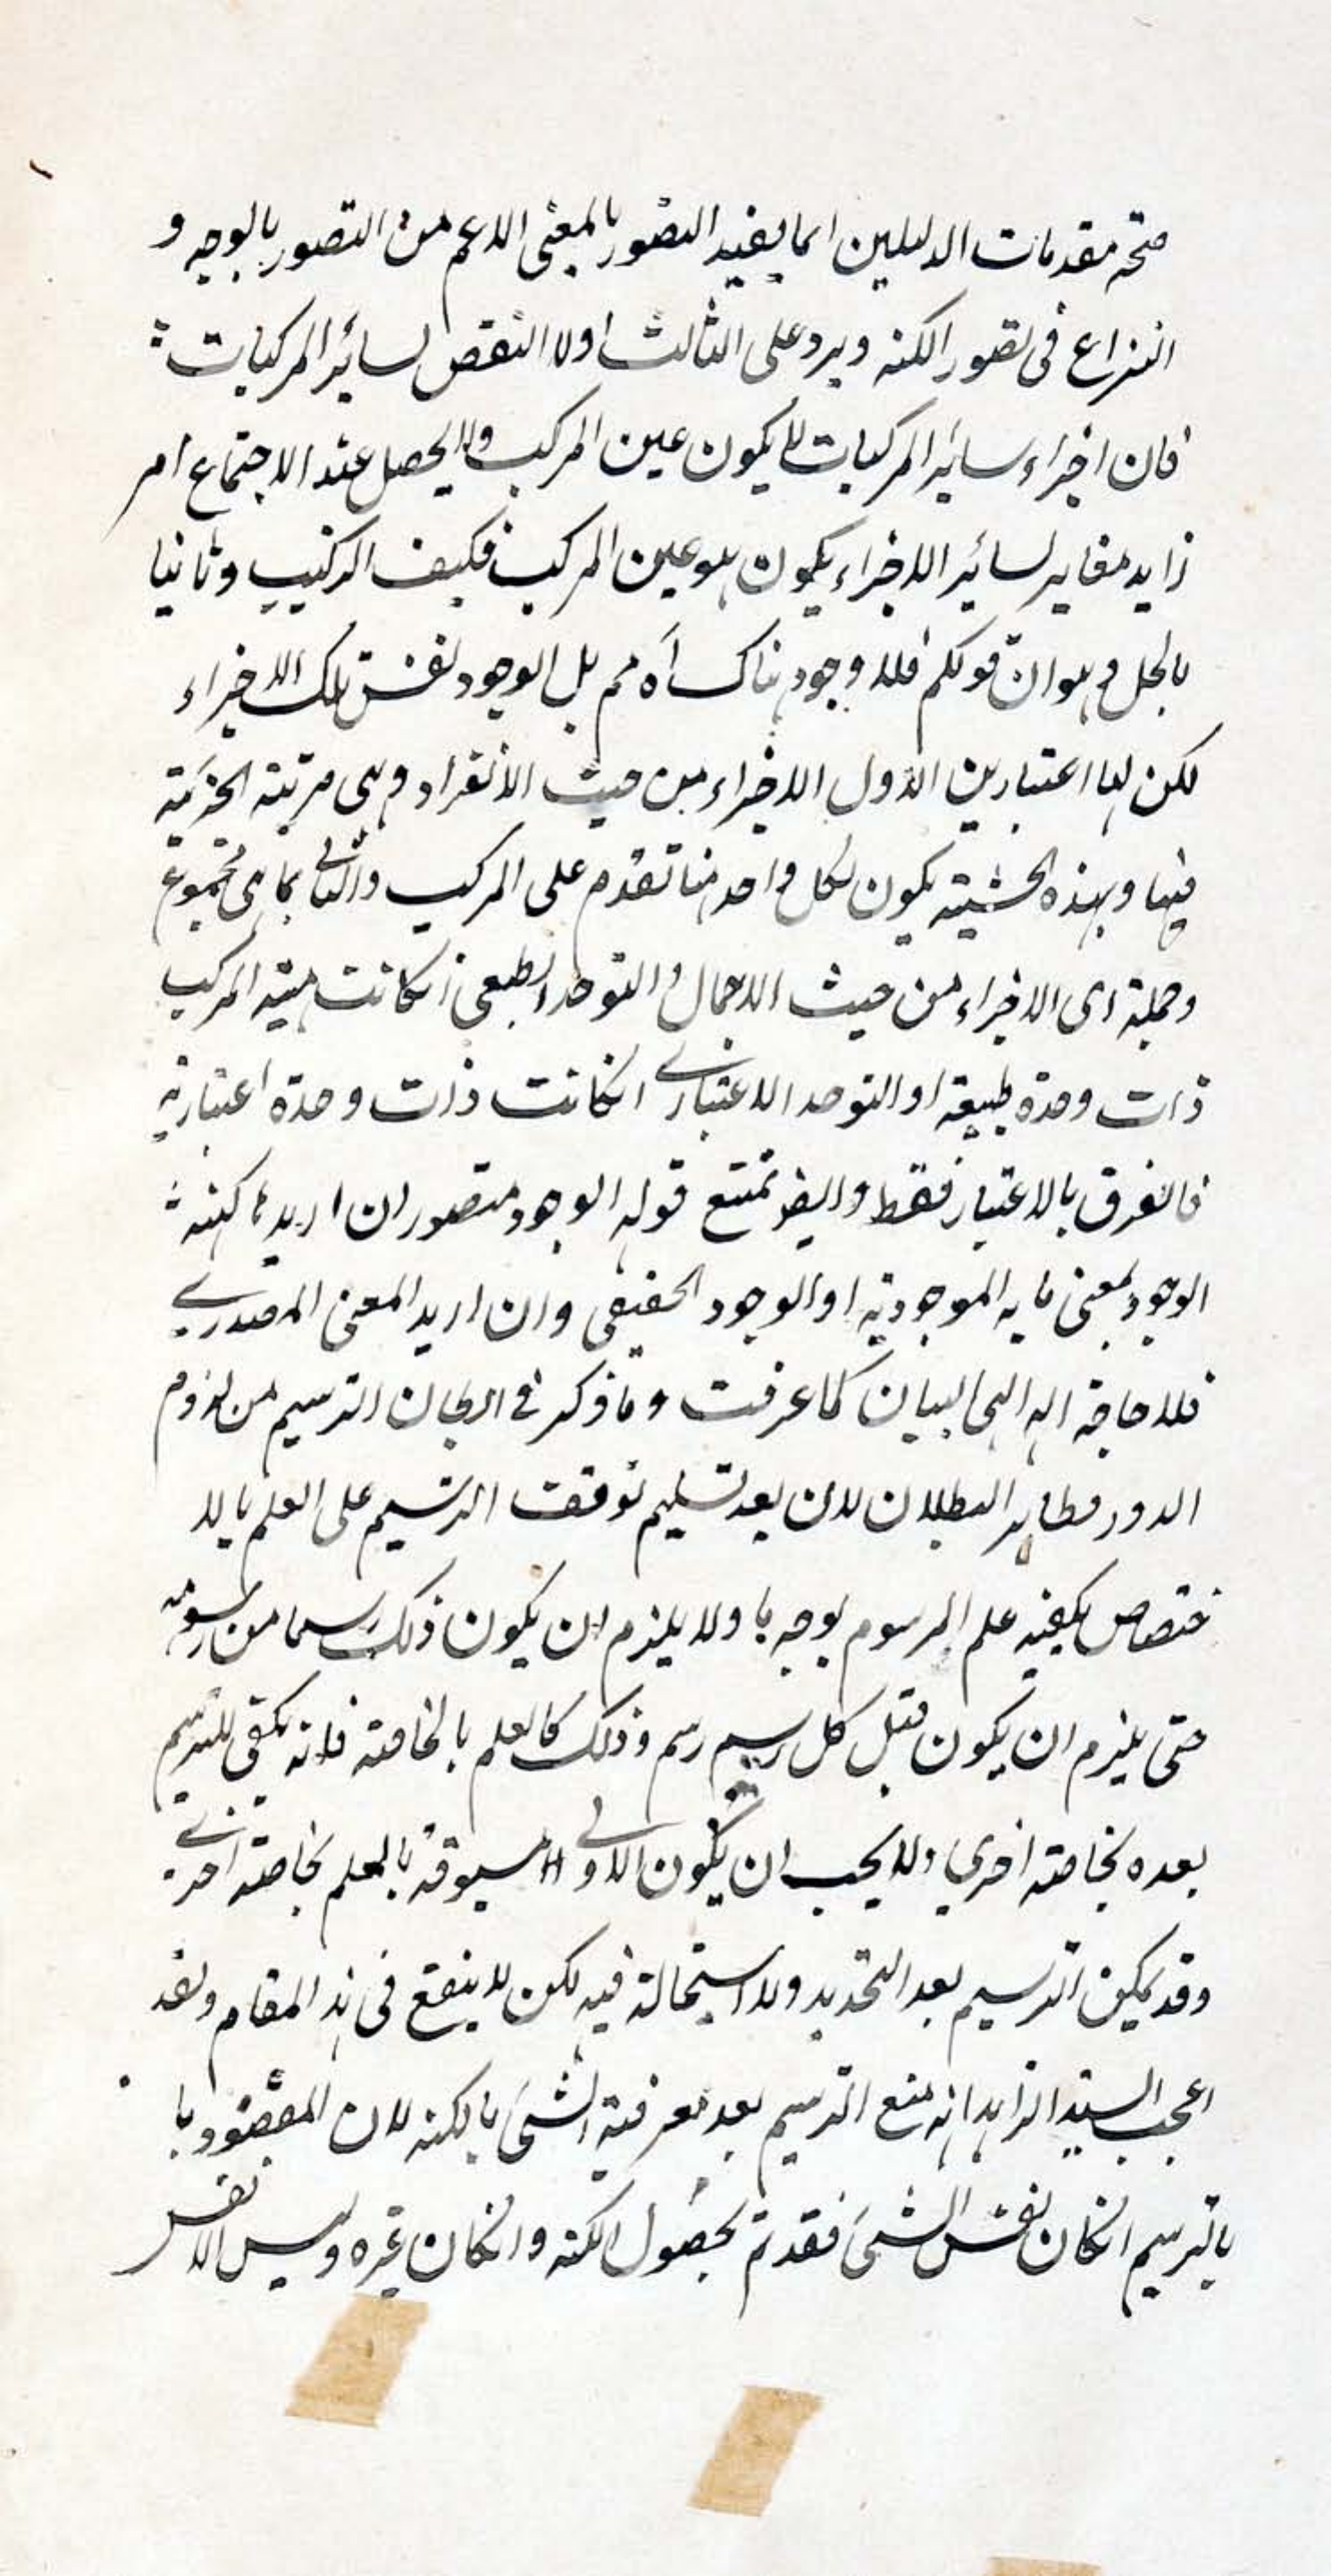 صحه مقدمات الدليلين انما يفيد التصور بالمعنى الاعم من التصور بالوجه و
النزاع فى تصور الكنه ويرد على الثالث اولا النقض لسائر المركبات
فان اجزاء سائر المركبات لا يكون عين المركب والا يحصل عند الاجتماع امر
زايد مغاير لسائر الاجزاء يكون هو عين المركب فكيف التركيب وثانيا
بالحل وهو ان قولكم فلا وجود هناك اه مم بل الوجود نفس تلك الاجزاء
لكن لها اعتبارين الاول الاجزاء من حيث الانفراد وهى مرتبة الجزئية
فيها وبهذه الحيثية يكون لكل واحد منها تقدم على المركب والثانى بما هى مجموع
وجملة اى الاجزاء من حيث الاجمال والتوحد الطبعى انكانت هية المركب
ذات وحدة طبيعة او التوحد الاعتبارى انكانت ذات وحدة اعتبارية
فالفرق بالاعتبار فقط وايضر تمتنع قوله الوجود متصور ان اريد كنه
الوجود بمعنى ما به الموجودية او الوجود الحقيقى وان اريد المعنى المصدرى
فلا حاجة له الى البيان كما عرفت وما ذكر فى ابطال الترسيم من لزوم
الدور فظاهر البطلان لان بعد تسليم توقف الترسيم على العلم بالا
ختصاص يكفيه علم المرسوم بوجه ما ولا يلزم ان يكون ذلك رسما من رسومه
حتى يلزم ان يكون قبل كل رسم رسم وذلك كالعلم بالخاصة فانه يكفى للترسيم
بعده بخاصة اخرى ولا يجب ان يكون الاولى مسبوقة بالعلم بخاصة اخرى
وقد يمكن الترسيم بعد التحديد ولا استحالة فيه لكن لا ينفع فى هذا المقام ولقد
اعجب السيد الزاهد انه منع الترسيم بعد معرفة الشىء بالكنه لان المقصود با
بالترسيم انكان نفس الشىء فقد تم بحصول الكنه وانكان غيره وليس الا نفس